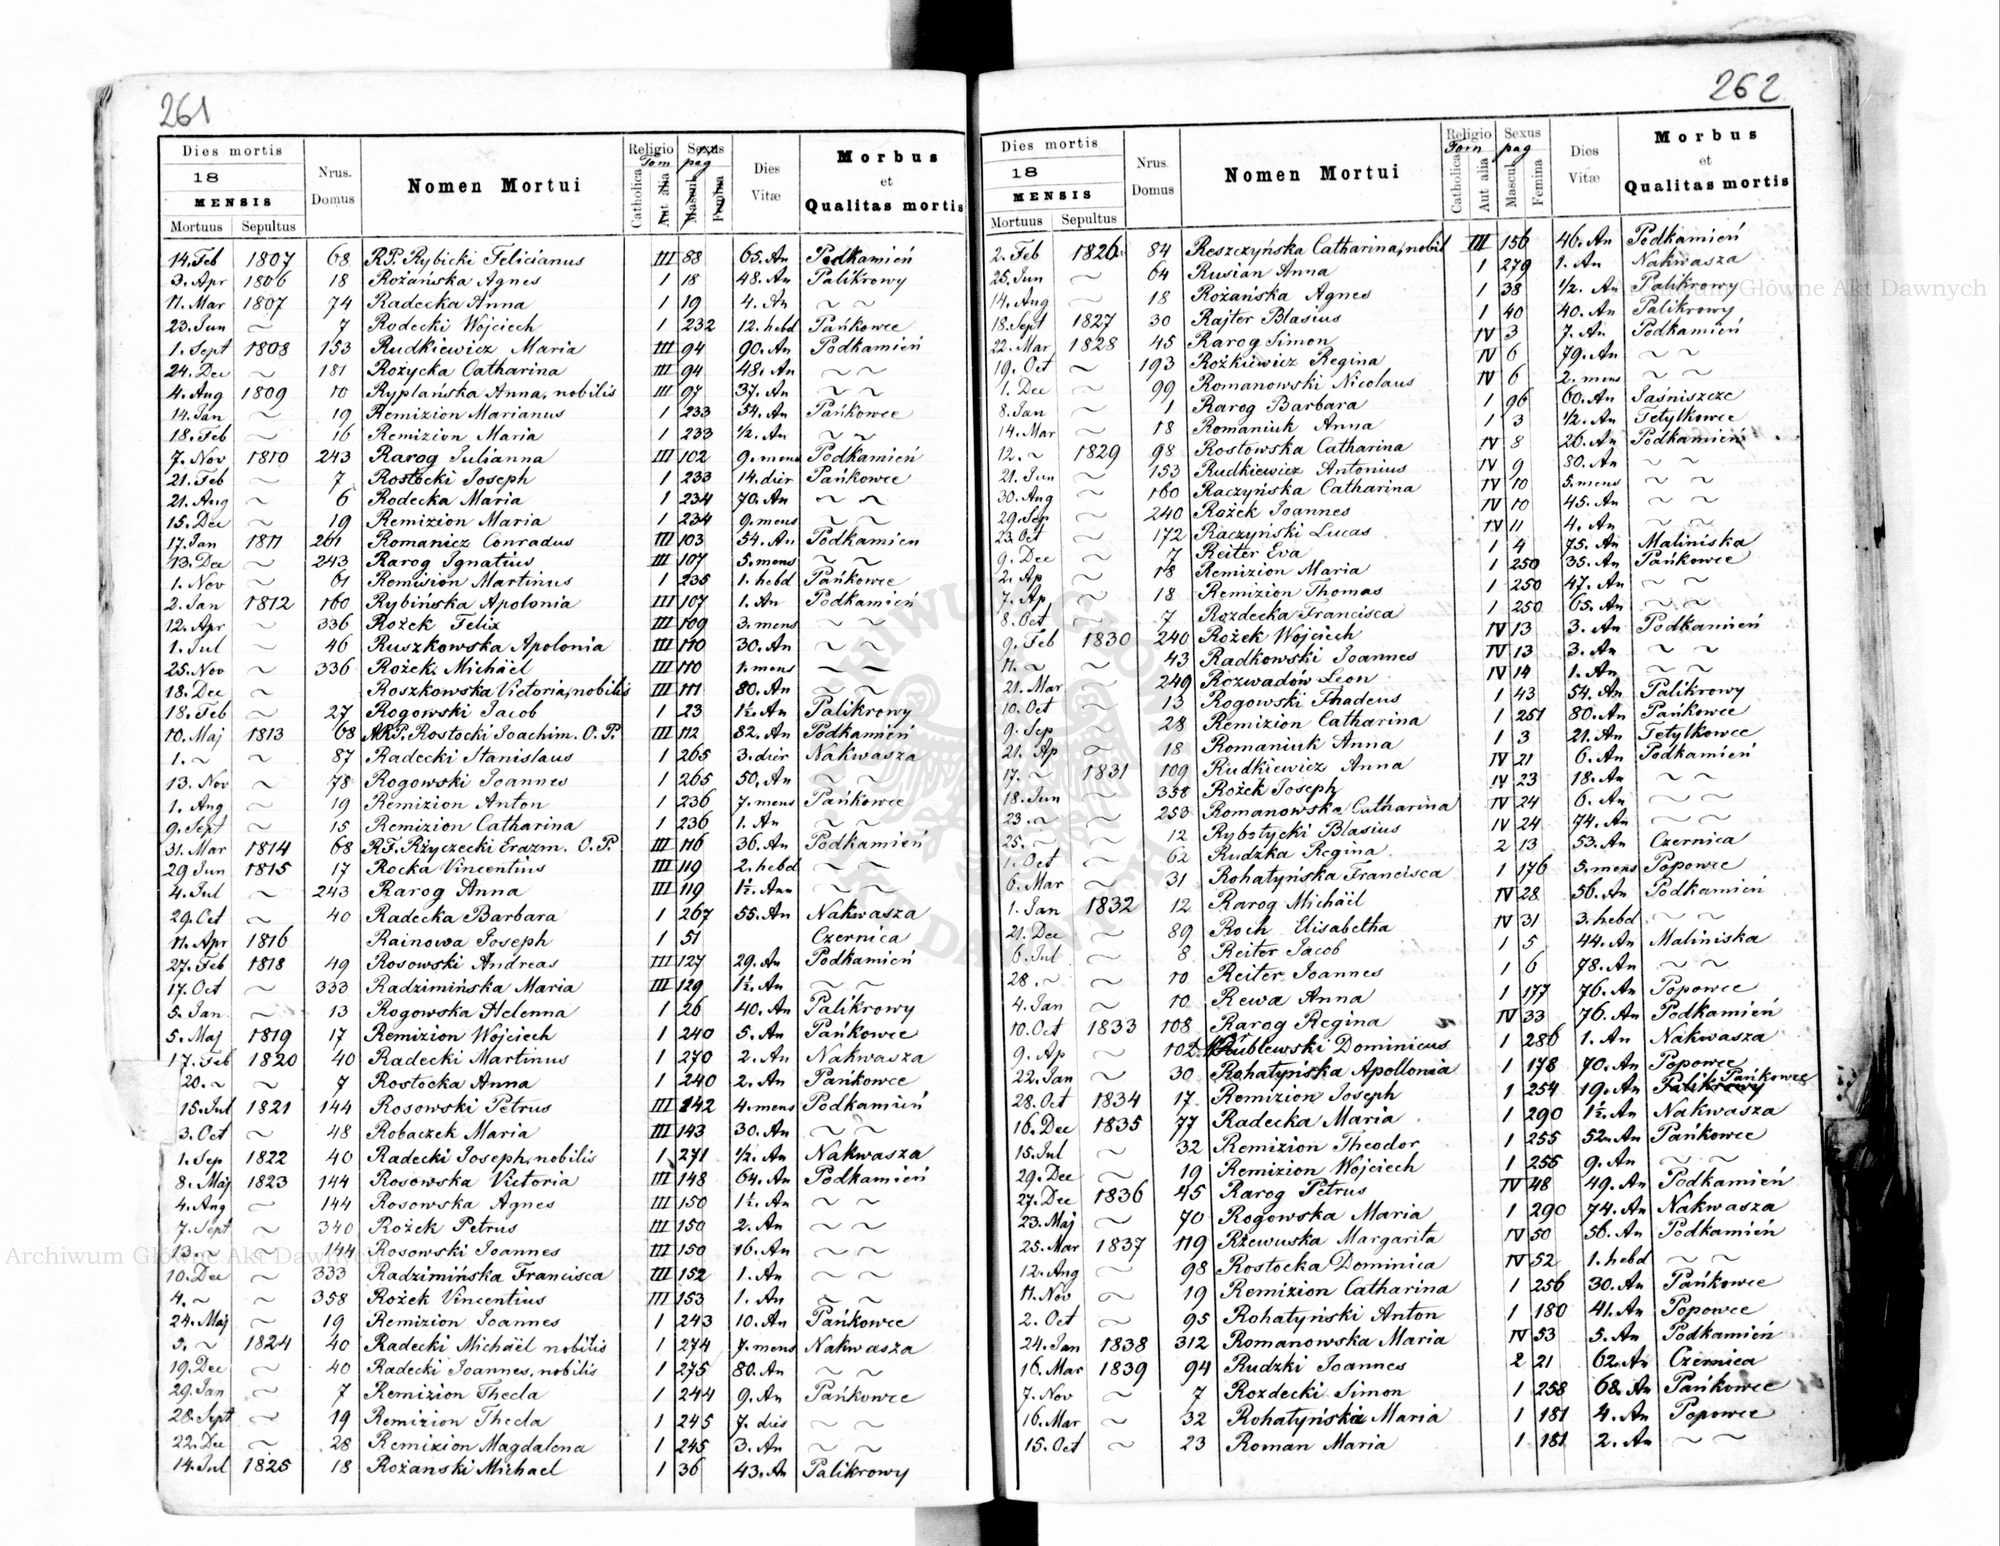 261
Dies mortis
18
MENSIS
Mortuus Sepultus
Nrus. Domus
Nomen Mortui
Religio Tom
Catholica
Aut alia
Sexus pag
Mascul
Femina
Dies Vitæ
Morbus
et
Qualitas mortis
14. Feb 1807 68 R.P. Rybicki Felicianus III 88 65. An Podkamień
3. Apr 1806 18 Rożańska Agnes 1 18 48. An Palikrowy
11. Mar 1807 74 Radecka Anna 1 19 4. An ~ ~
23. Jun ~ 7 Rodecki Wojciech 1 232 12. hebd Pańkowce
1. Sept 1808 153 Rudkiewicz Maria III 94 90. An Podkamień
24. Dec ~ 181 Rożycka Catharina III 94 48. An ~ ~
4. Aug 1809 10 Ryplańska Anna, nobilis III 97 37. An ~ ~
14. Jan ~ 19 Remizion Marianus 1 233 54. An Pańkowce
18. Feb ~ 16 Remizion Maria 1 233 ½. An ~ ~
7. Nov 1810 243 Rarog Julianna III 102 9. mens Podkamień
21. Feb ~ 7 Rostocki Joseph 1 233 14. dier Pańkowce
21. Aug ~ 6 Rodecka Maria 1 234 70. An ~ ~
15. Dec ~ 19 Remizion Maria 1 234 9. mens ~ ~
17. Jan 1811 261 Romanicz Conradus III 103 54. An Podkamien
13. Dec ~ 243 Rarog Ignatius III 107 5. mens ~ ~
1. Nov ~ 61 Remision Martinus 1 235 1. hebd Pańkowce
2. Jan 1812 160 Rybińska Apolonia III 107 1. An Podkamień
12. Apr ~ 336 Rożek Felix III 109 3. mens ~ ~
1. Jul ~ 46 Ruszkowska Apolonia III 110 30. An ~ ~
25. Nov ~ 336 Rożek Michäel III 110 1. mens ~ ~
18. Dec ~ Roszkowska Victoria, nobilis III 111 80. An ~ ~
18. Feb ~ 27 Rogowski Jacob 1 23 1½. An Palikrowy
10. Maj 1813 68 Rostocki Joachim. O.P. III 112 82. An Podkamień
1. ~ ~ 87 Radecki Stanislaus 1 265 3. dier Nakwasza
13. Nov ~ 78 Rogowski Joannes 1 265 50. An ~ ~
1. Aug ~ 19 Remizion Anton 1 236 7. mens Pańkowce
9. Sept ~ 15 Remizion Catharina 1 236 1. An ~ ~
31. Mar 1814 68 R.F. Rżyczecki Erazm. O.P. III 116 36. An Podkamień
29 Jun 1815 17 Rocka Vincentius III 119 2. hebd ~ ~
4. Jul ~ 243 Rarog Anna III 119 1½. Ann ~ ~
29. Oct ~ 40 Radecka Barbara 1 267 55. An Nakwasza
11. Apr 1816 Rainowa Joseph 1 51 Czernica
27. Feb 1818 49 Rosowski Andreas III 127 29. An Podkamień
17. Oct ~ 333 Radzimińska Maria III 129 1½. An ~ ~
5. Jan ~ 13 Rogowska Helenna 1 26 40. An Palikrowy
5. Maj 1819 17 Remizion Wojciech 1 240 5. An Pańkowce
17. Feb 1820 40 Radecki Martinus 1 270 2. An Nakwasza
20. ~ ~ 7 Rostocka Anna 1 240 2. An Pańkowce
15. Jul 1821 144 Rosowski Petrus III 142 4. mens Podkamień
3. Oct ~ 48 Robaczek Maria III 143 30. An ~ ~
1. Sep 1822 40 Radecki Joseph, nobilis 1 271 ½. An Nakwasza
8. Maj 1823 144 Rosowska Victoria III 148 64. An Podkamień
4. Aug ~ 144 Rosowska Agnes III 150 1½. An ~ ~
7. Sept ~ 340 Rożek Petrus III 150 2. An ~ ~
13. ~ ~ 144 Rosowski Joannes III 150 16. An ~ ~
10. Dec ~ 333 Radzimińska Francisca III 152 1. An ~ ~
4. ~ ~ 358 Rożek Vincentius III 153 1. An ~ ~
24. Maj ~ 19 Remizion Joannes 1 243 10. An Pańkowce
3. ~ 1824 40 Radecki Michäel nobilis 1 274 7. mens Nakwasza
19. Dec ~ 40 Radecki Joannes, nobilis 1 275 80. An ~ ~
29. Jan ~ 7 Remizion Thecla 1 244 9. An Pańkowce
28. Sept ~ 19 Remizion Thecla 1 245 7. dies ~ ~
22. Dec ~ 28 Remizion Magdalena 1 245 3. An ~ ~
14. Jul 1825 18 Rożanski Michael 1 36 43. An Palikrowy
262
Dies mortis
18
MENSIS
Mortuus Sepultus
Nrus. Domus
Nomen Mortui
Religio Tom
Catholica
Aut alia
Sexus pag
Mascul
Femina
Dies Vitæ
Morbus
et
Qualitas mortis
2. Feb 1826 84 Reszczyńska Catharina, nobil III 156 46. An Podkamień
25. Jun ~ 64 Rusian Anna 1 279 1. An Nakwasza
14. Aug ~ 18 Rożańska Agnes 1 38 ½. An Palikrowy
18. Sept 1827 30 Rajter Blasius 1 40 40. An Palikrowy
22. Mar 1828 45 Rarog Simon IV 3 7. An Podkamień
19. Oct ~ 193 Rożkiewicz Regina IV 6 79. An ~ ~
1. Dec ~ 99 Romanowski Nicolaus IV 6 2. mens ~ ~
8. Jan ~ 1 Rarog Barbara 1 96 60. An Jaśniszcze
14. Mar ~ 18 Romaniuk Anna 1 3 ½. An Tetylkowce
12. ~ 1829 98 Rostowska Catharina IV 8 26. An Podkamień
21. Jun ~ 153 Rudkiewicz Antonius IV 9 80. An ~ ~
30. Aug ~ 160 Raczyńska Catharina IV 10 5. mens ~ ~
29. Sep ~ 240 Rożek Joannes IV 10 45. An ~ ~
23. Oct ~ 172 Raczyński Lucas IV 11 4. An ~ ~
9. Dec ~ 7 Reiter Eva 1 4 75. An Maliniska
2. Ap ~ 18 Remizion Maria 1 250 35. An Pańkowce
7. Ap ~ 18 Remizion Thomas 1 250 47. An ~ ~
8. Oct ~ 7 Rozdecka Francisca 1 250 65. An ~ ~
9. Feb 1830 240 Rożek Wojciech IV 13 3. An Podkamień
11. ~ ~ 43 Radkowski Joannes IV 13 3. An ~ ~
21. Mar ~ 249 Rozwadów Leon IV 14 1. An ~ ~
10. Oct ~ 13 Rogowski Thadeus 1 43 54. An Palikrowy
9. Sep ~ 28 Remizion Catharina 1 251 80. An Pańkowce
21. Ap ~ 18 Romaniuk Anna 1 3 21. An Tetylkowce
17. ~ 1831 109 Rudkiewicz Anna IV 21 6. An Podkamień
18. Jun ~ 358 Rożek Joseph IV 23 18. An ~ ~
23. ~ ~ 253 Romanowska Catharina IV 24 6. An ~ ~
25. ~ ~ 12 Rybotycki Blasius IV 24 74. An ~ ~
1. Oct ~ 62 Rudzka Regina 2 13 53. An Czernica
6. Mar ~ 31 Rohatyńska Francisca 1 176 5. mens Popowce
1. Jan 1832 12 Rarog Michäel IV 28 56. An Podkamień
21. Dec ~ 89 Roch Elisabetha IV 31 3. hebd ~ ~
6. Jul ~ 8 Reiter Jacob 1 5 44. An Maliniska
28. ~ ~ 10 Reiter Joannes 1 6 78. An ~ ~
4. Jan ~ 10 Rewa Anna 1 177 76. An Popowce
10. Oct 1833 108 Rarog Regina IV 33 76. An Podkamień
9. Ap ~ 102 Wrublewski Dominicus 1 286 1. An Nakwasza
22. Jan ~ 30 Rohatyńska Apollonia 1 178 70. An Popowce
28. Oct 1834 17 Remizion Joseph 1 254 19. An Palikrowy Pańkowce
16. Dec 1835 77 Radecka Maria 1 290 1½. An Nakwasza
15. Jul ~ 32 Remizion Theodor 1 255 52. An Pańkowce
29. Dec ~ 19 Remizion Wojciech 1 255 9. An ~ ~
27. Dec 1836 45 Rarog Petrus IV 48 49. An Podkamień
23. Maj ~ 70 Rogowska Maria 1 290 74. An Nakwasza
25. Mar 1837 119 Rżewuska Margarita IV 50 56. An Podkamień
12. Aug ~ 98 Rostocka Dominica IV 52 1. hebd ~ ~
11. Nov ~ 19 Remizion Catharina 1 256 30. An Pańkowce
2. Oct ~ 95 Rohatyński Anton 1 180 41. An Popowce
24. Jan 1838 312 Romanowska Maria IV 53 5. An Podkamień
16. Mar 1839 94 Rudzki Joannes 2 21 62. An Czernica
7. Nov ~ 7 Rozdecki Simon 1 258 68. An Pańkowce
16. Mar ~ 32 Rohatyńska Maria 1 181 4. An Popowce
15. Oct ~ 23 Roman Maria 1 181 2. An ~ ~
Archiwum Główne Akt Dawnych
Archiwum Główne Akt Dawnych